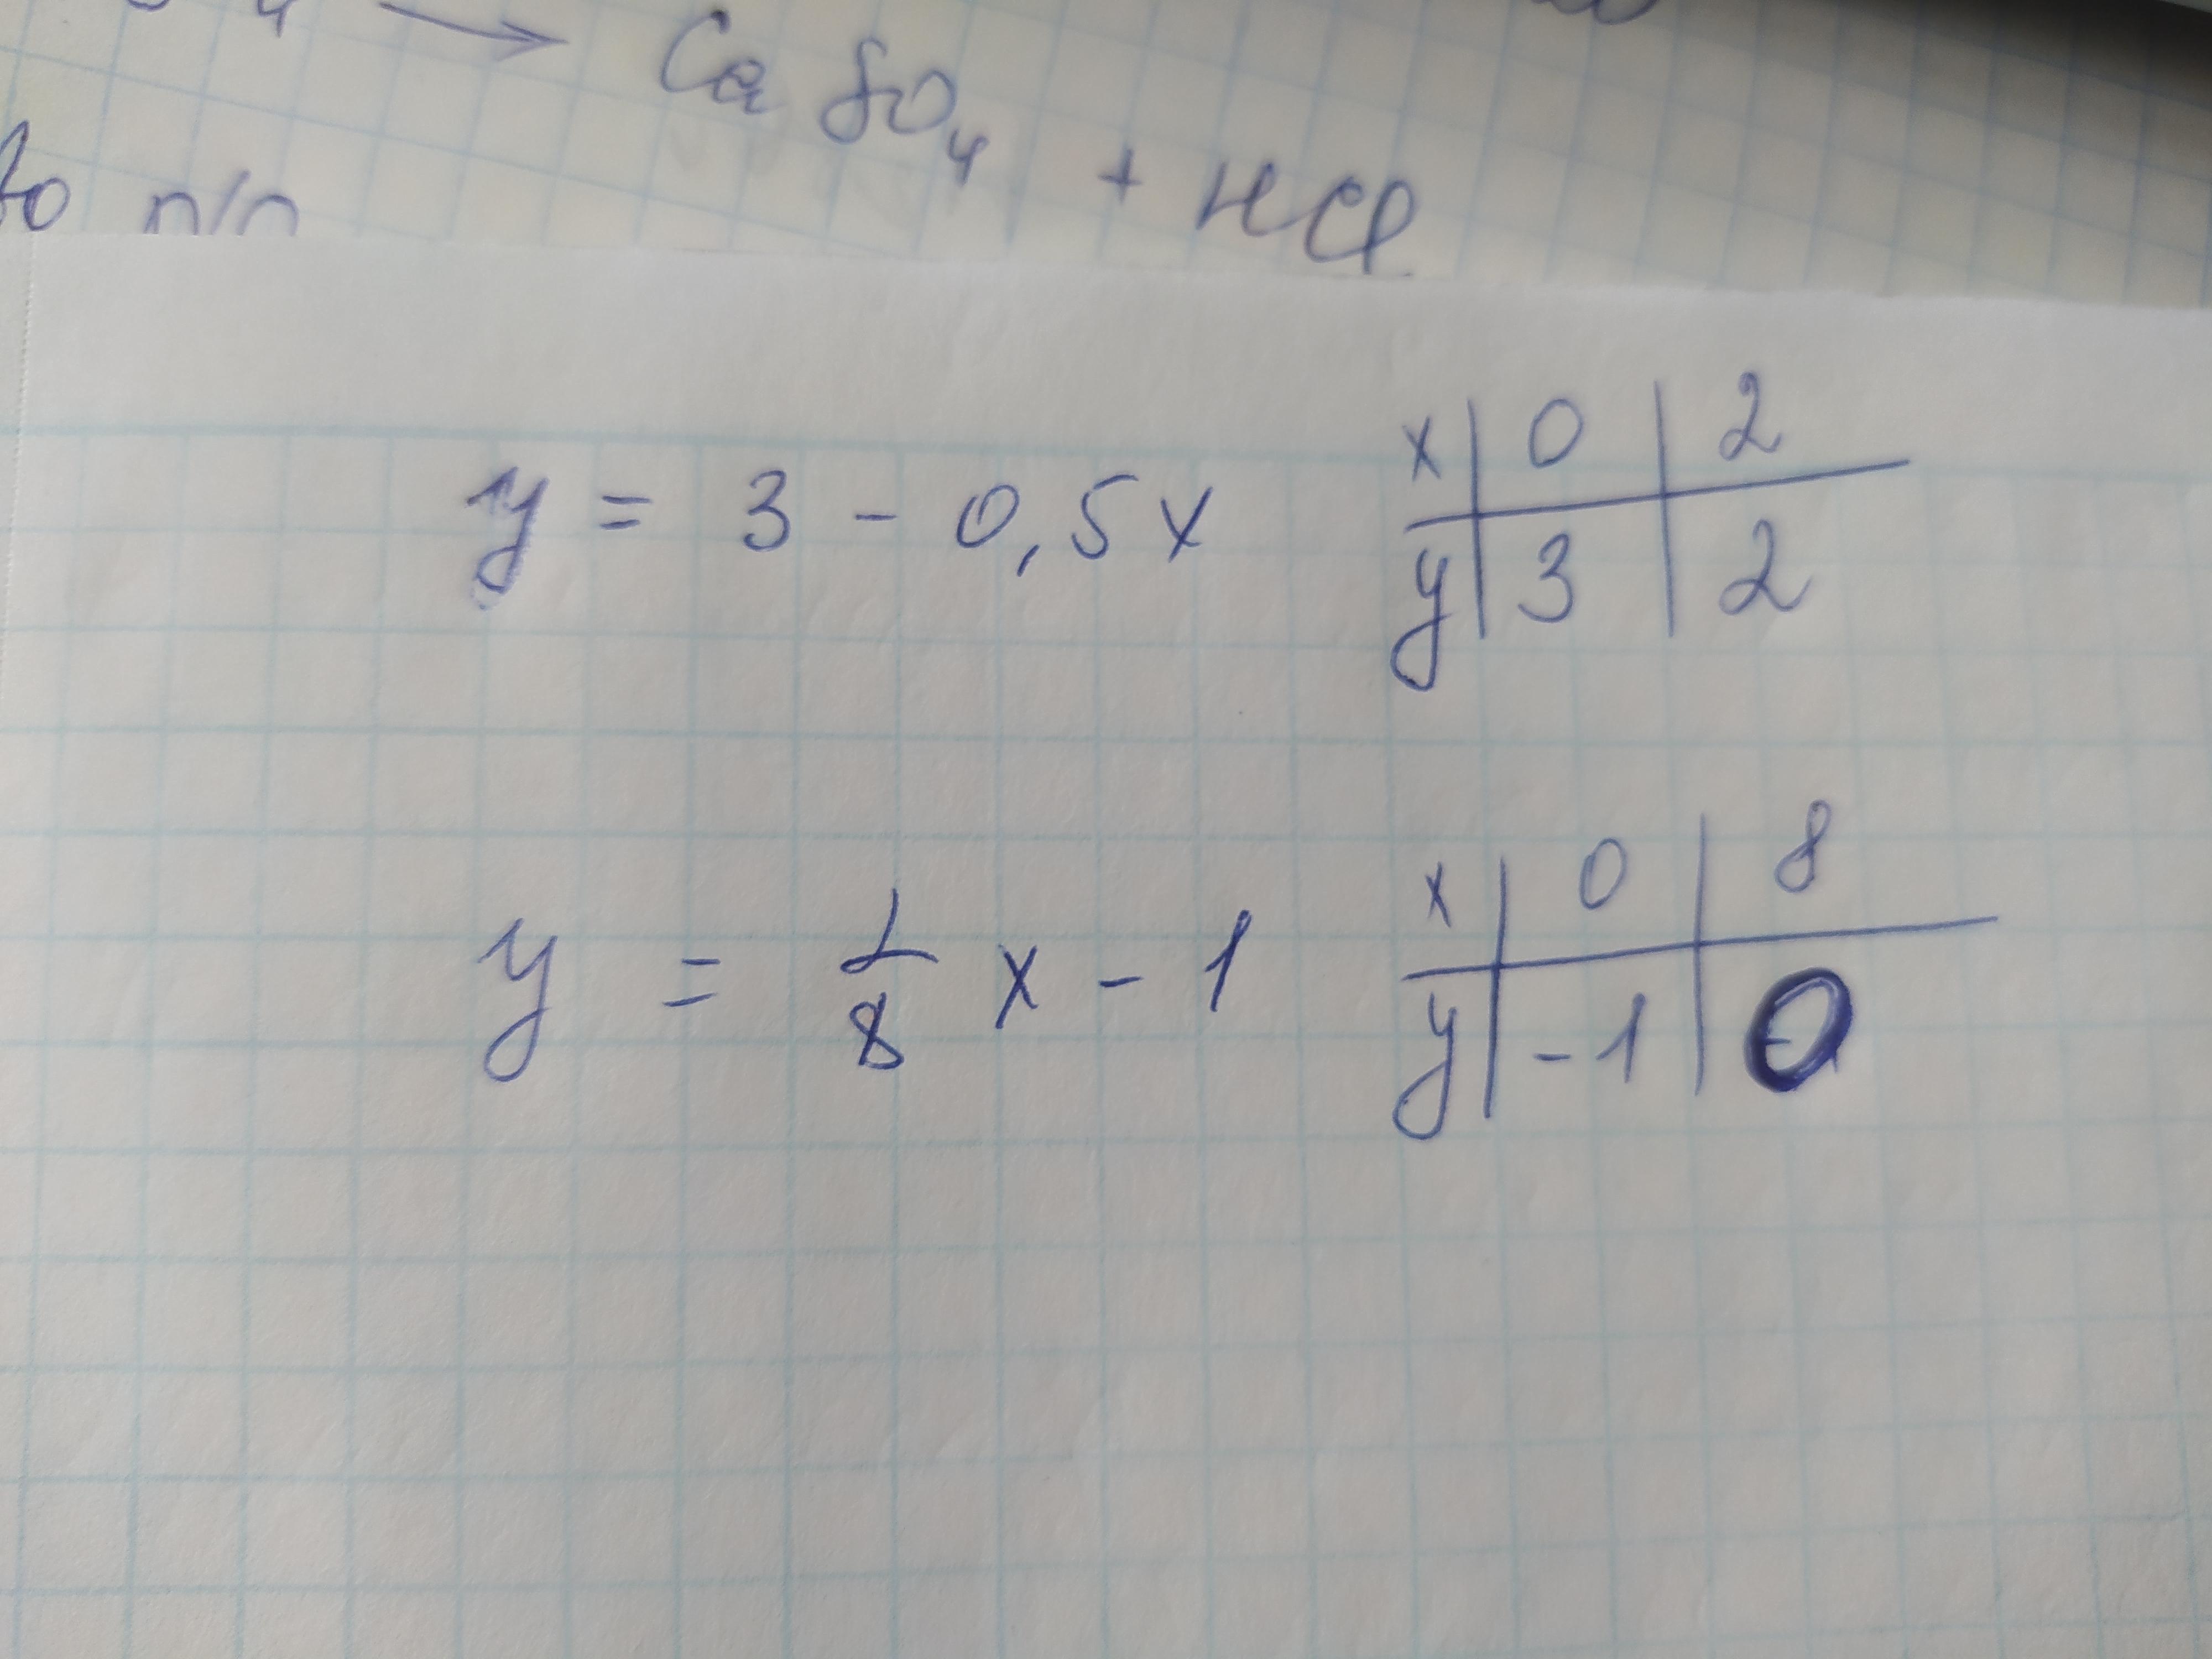 4 → CaSO₄ + HCl
п/п
y = 3 - 0,5x
x | 0 | 2
y | 3 | 2
y = 1/8 x - 1
x | 0 | 8
y | -1 | 0